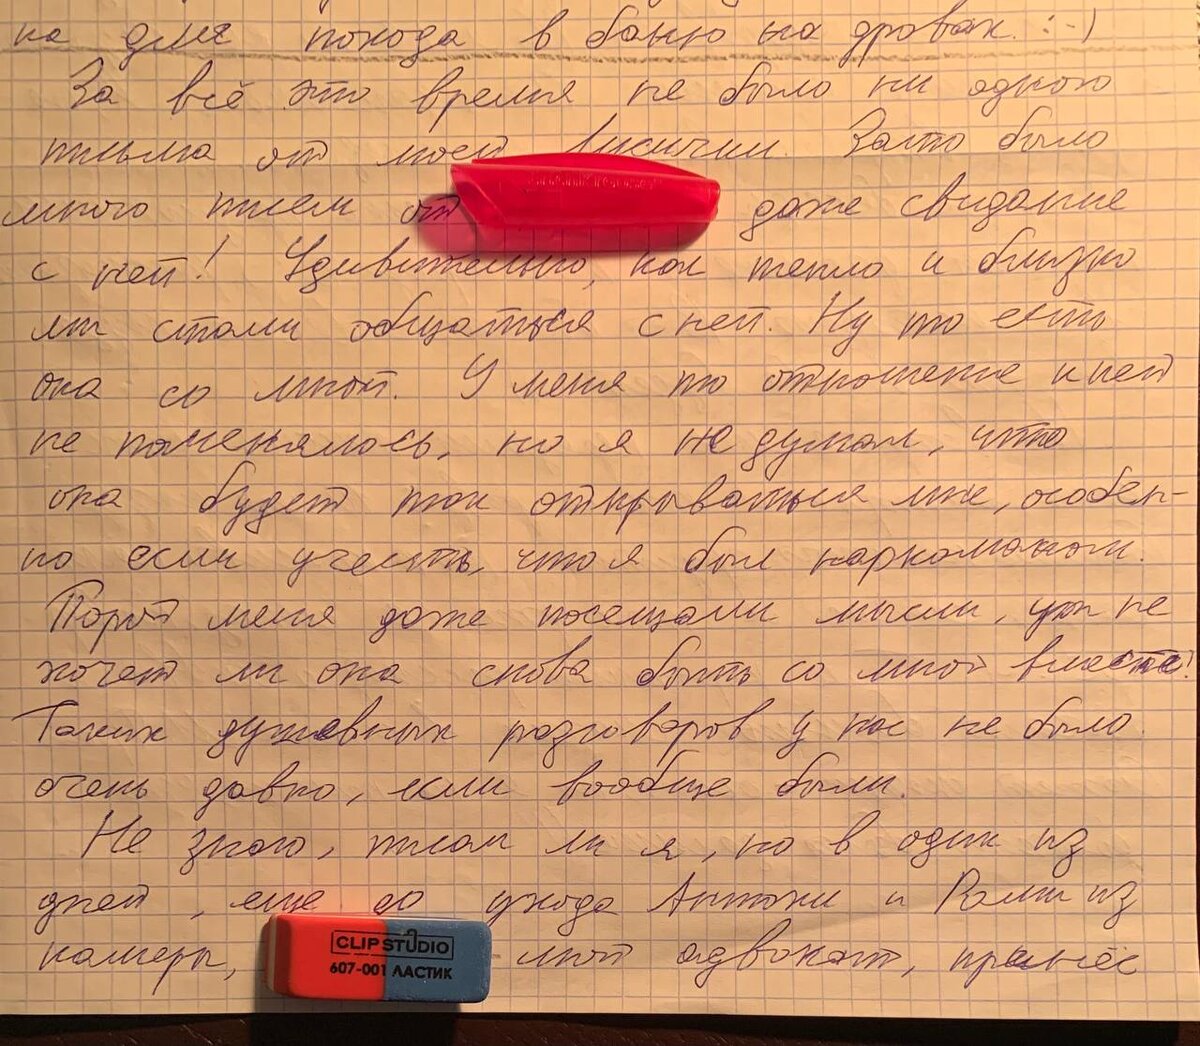 на для похода в баню на дровах. :-)
За всё это время не было ни одного
письма от моей Лисички. Зато было
много писем от даже свидание
с ней! Удивительно, как тепло и близко
мы стали общаться с ней. Ну то есть
она со мной. У меня то отношение к ней
не поменялось, но я не думал, что
она будет так открываться мне, особен-
но если учесть, что я был наркоманом.
Порой меня даже посещали мысли, уж не
хочет ли она снова быть со мной вместе?
Таких душевных разговоров у нас не было
очень давно, если вообще были.
Не знаю, писал ли я, но в один из
дней, еще до ухода Антохи и Ромы из
камеры, мой адвокат, принёс
CLIP STUDIO
607-001 ЛАСТИК